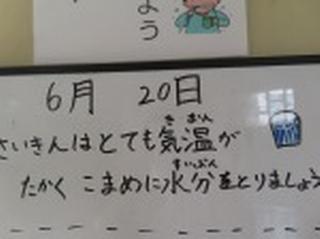 よう
6月 20日
さいきんはとても気温が
たかく こまめに水分をとりましょう